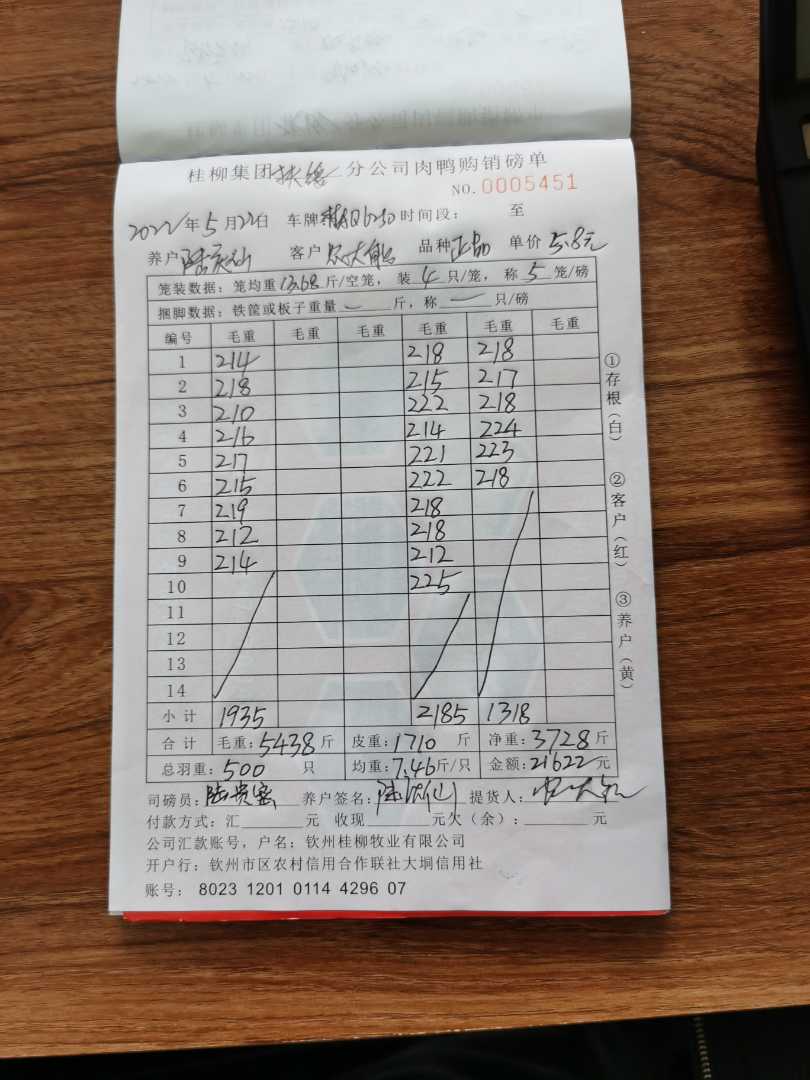 桂柳集团扶绥分公司肉鸭购销磅单
NO. 0005451
2022年5月22日 车牌 Q6250 时间段: 至
养户 客户 品种 正品 单价 5.8元
笼装数据: 笼均重13.68斤/空笼, 装4只/笼, 称5笼/磅
捆脚数据: 铁筐或板子重量 — 斤, 称 — 只/磅
编号 毛重 毛重 毛重 毛重 毛重 毛重
1 214 218 218
2 218 215 217
3 210 222 218
4 216 214 224
5 217 221 223
6 215 222 218
7 219 218
8 212 218
9 214 212
10 225
11
12
13
14
小计 1935 2185 1318
合计 毛重: 5438斤 皮重: 1710斤 净重: 3728斤
总羽重: 500只 均重: 7.46斤/只 金额: 21622元
司磅员: 陆贵 养户签名: 陆 提货人:
付款方式: 汇 元 收现 元欠(余): 元
公司汇款账号, 户名: 钦州桂柳牧业有限公司
开户行: 钦州市区农村信用合作联社大垌信用社
账号: 8023 1201 0114 4296 07
①存根(白) ②客户(红) ③养户(黄)